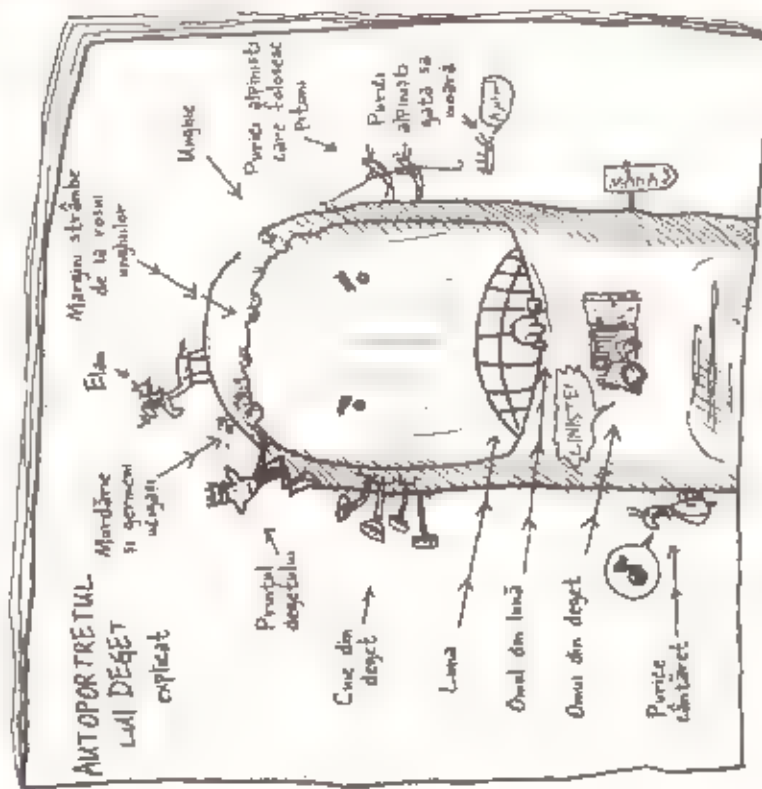 AUTOPORTRETUL
LUI DEGET
explicat
Murdărie
și germeni
ucigași
Elan
Margini strâmbe
de la rosul
unghiilor
Unghie
Purici alpiniști
care folosesc
pitoni
Purici
alpiniști
gata să
moară
Prințul
degetului
Cuie din
deget
Lună
Omul din lună
LINIȘTE!
Omul din deget
Purice
cântăreț